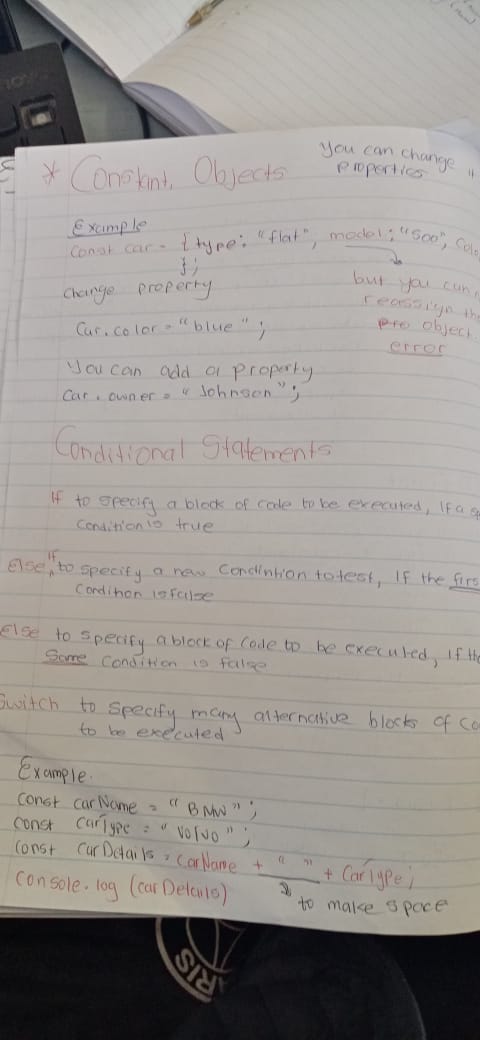 * Constant Objects
you can change
properties
Example
Const car = { type: "flat", model: "500", Colo
};
change property
but you can
reassign the
pro object
error
Car.color = "blue";
You can add a property
Car.owner = "Johnson";
Conditional Statements
If to specify a block of code to be executed, If a sp
Condition is true
Else if to specify a new Condintion to test, If the firs
Condition is false
Else to specify a block of Code to be executed, if the
Same Condition is false
Switch to specify many alternative blocks of co
to be executed
Example.
Const carName = "BMW";
Const carType = "Volvo";
Const carDetails = carName + " " + CarType;
Console.log (carDetails)
to make space
ARIS